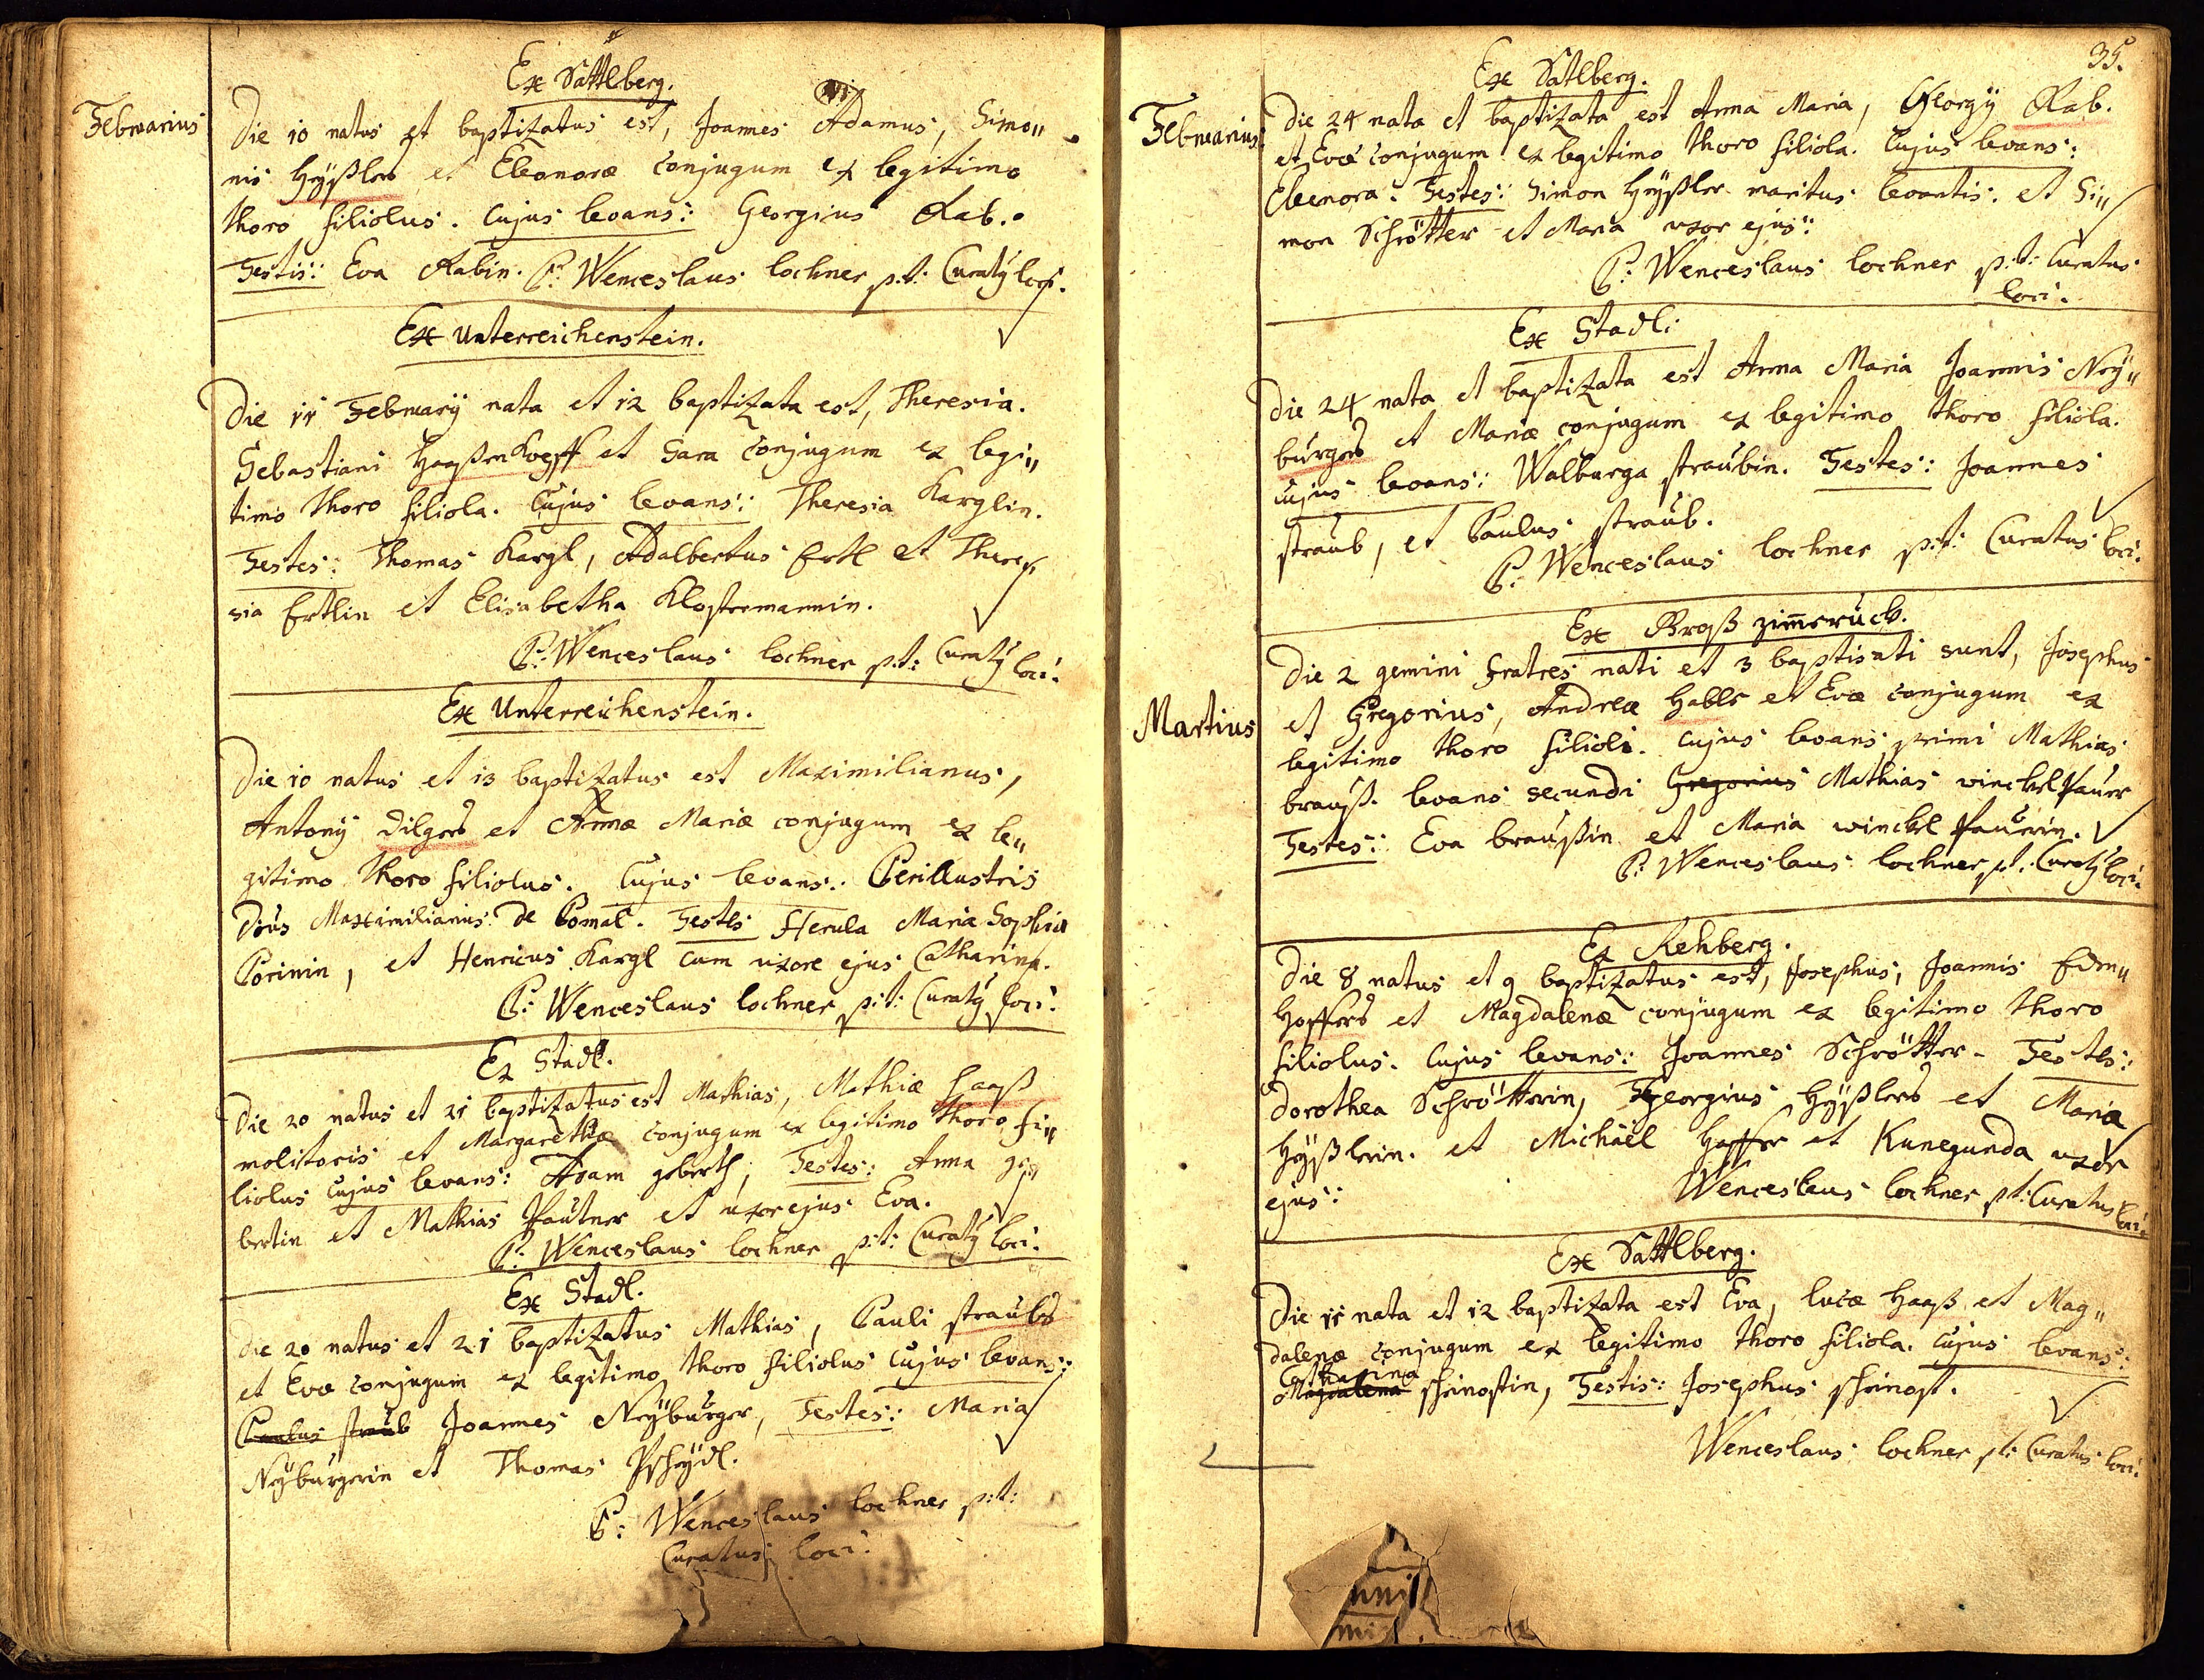 Februarius
Ex Sattlberg.
Die 10 natus et baptizatus est, Joannes Adamus, Simo„
nis Heÿßlers et Eleonoræ conjugum ex legitimo
thoro filiolus. Cujus levans: Georgius Rab.
Testis: Eva Rabin. P: Wenceslaus Lochner p:t: Curatq loci.
Ex Unterreichenstein.
Die 11 Februarÿ nata et 12 baptizata est, Theresia.
Sebastiani Haaßenkopff et Sara conjugum ex legi„
timo thoro filiola. Cujus levans: Theresia Karglin.
Testes: Thomas Kargl, Adalbertus Ertl et There„
sia Ertlin et Elisabetha Klostermannin.
P: Wenceslaus Lochner p:t: Curatq loci.
Ex Unterreichenstein.
Die 10 natus et 13 baptizatus est Maximilianus,
Antonÿ Dilgers et Annæ Mariæ conjugum ex le„
gitimo thoro filiolus. Cujus levans: Perillustris
Dnus Maximilianus de Comal. Testes Herula Maria Sophia
Corinin, et Henricus Kargl cum uxore ejus Catharina.
P: Wenceslaus Lochner p:t: Curatq loci.
Ex Stadl.
Die 20 natus et 21 baptizatus est Mathias, Mathiæ Haaß
molitoris et Margarethæ conjugum ex legitimo thoro fi„
liolus Cujus levans: Adam geberth, Testes: Anna ge„
bertin et Mathias Pautner et uxor ejus Eva.
P: Wenceslaus Lochner p:t: Curatq loci.
Ex Stadl.
Die 20 natus et 21 baptizatus Mathias, Pauli straubs
et Evæ conjugum ex legitimo thoro filiolus Cujus levans:
Paulus straub Joannes Neÿburger, Testes: Maria
Neÿburgerin et Thomas Pscheÿdl.
P: Wenceslaus Lochner p:t:
Curatus loci.
35.
Februarius
Ex Satlberg.
Die 24 nata et baptizata est Anna Maria, Georgÿ Rab.
et Evæ conjugum ex legitimo thoro filiola. Cujus levans:
Eleonora. Testes: Simon Heÿßler maritus levantis. et Si„
mon Schrötter et Maria uxor ejus:
P: Wenceslaus Lochner p:t: Curatus
loci.
Ex Stadl:
Die 24 nata et baptizata est Anna Maria Joannis Neÿ„
burgers et Mariæ conjugum ex legitimo thoro filiola.
Cujus levans: Walburga straubin. Testes: Joannes
straub, et Paulus straub.
P: Wenceslaus Lochner p:t: Curatus loci.
Martius
Ex Groß zim̄eruck.
Die 2 gemini fratres nati et 3 baptisati sunt, Josephus
et Gregorius, Andreæ Habls et Evæ conjugum ex
legitimo thoro filioli. Cujus levans primi Mathias
brauß. levans secundi Gregorius Mathias winckelpauer
Testes: Eva braußin et Maria winckelpaurin.
P: Wenceslaus Lochner p.t. Curatq loci.
Ex Rehberg.
Die 8 natus et 9 baptizatus est, Josephus, Joannis Edm„
Hoffers et Magdalenæ conjugum ex legitimo thoro
filiolus. Cujus levans: Joannes Schrötter. Testes:
Dorothea Schrötterin, Georgius Heÿßlers et Maria
Heÿßlerin. et Michäel Hoffer et Kunegunda uxor
ejus:
Wenceslaus Lochner p.t: Curatus loci.
Ex Sattlberg.
Die 11 nata et 12 baptizata est Eva, Lucæ Haaß et Mag„
dalenæ conjugum ex legitimo thoro filiola. Cujus levans:
Catharina
Magdalena scheinostin, Testis: Josephus scheinost.
Wenceslaus Lochner p.t: Curatus loci.